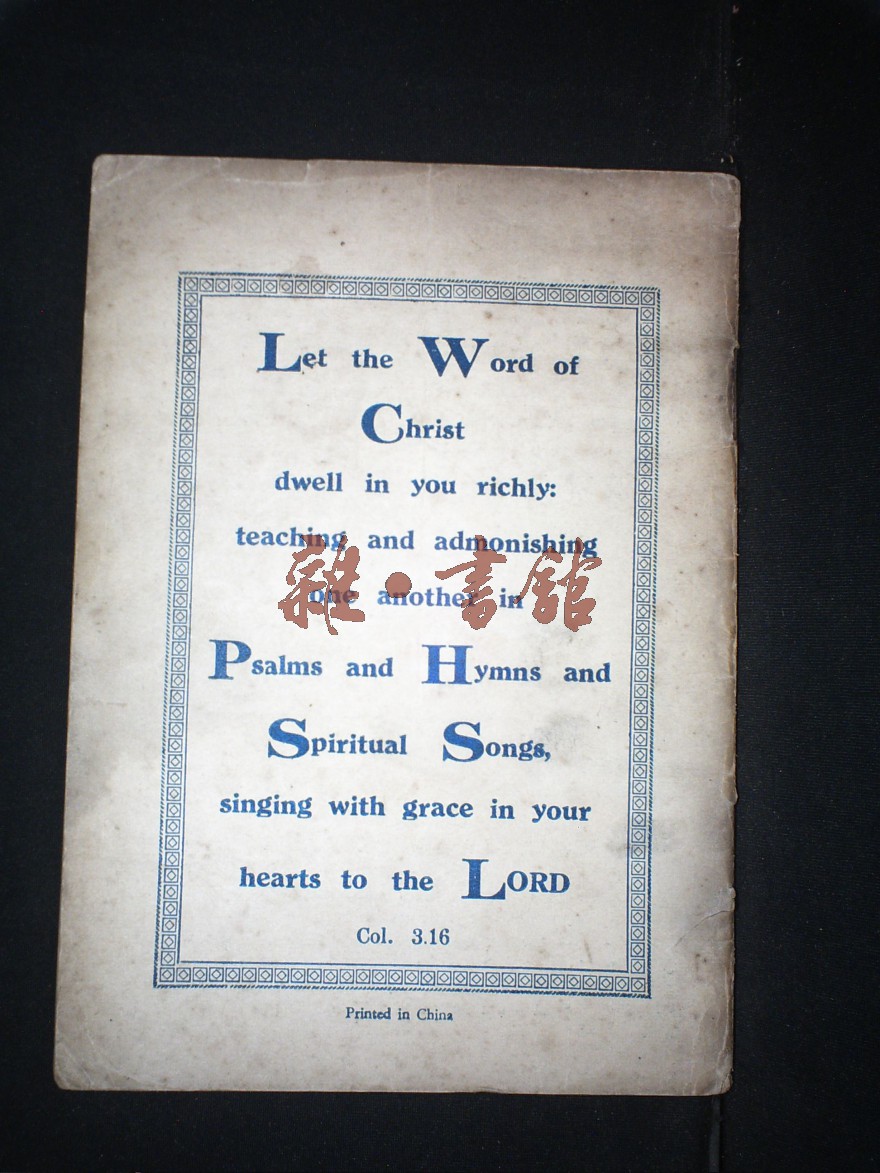 Let the Word of
Christ
dwell in you richly:
teaching and admonishing
one another in
雜·書館
Psalms and Hymns and
Spiritual Songs,
singing with grace in your
hearts to the LORD
Col. 3.16
Printed in China